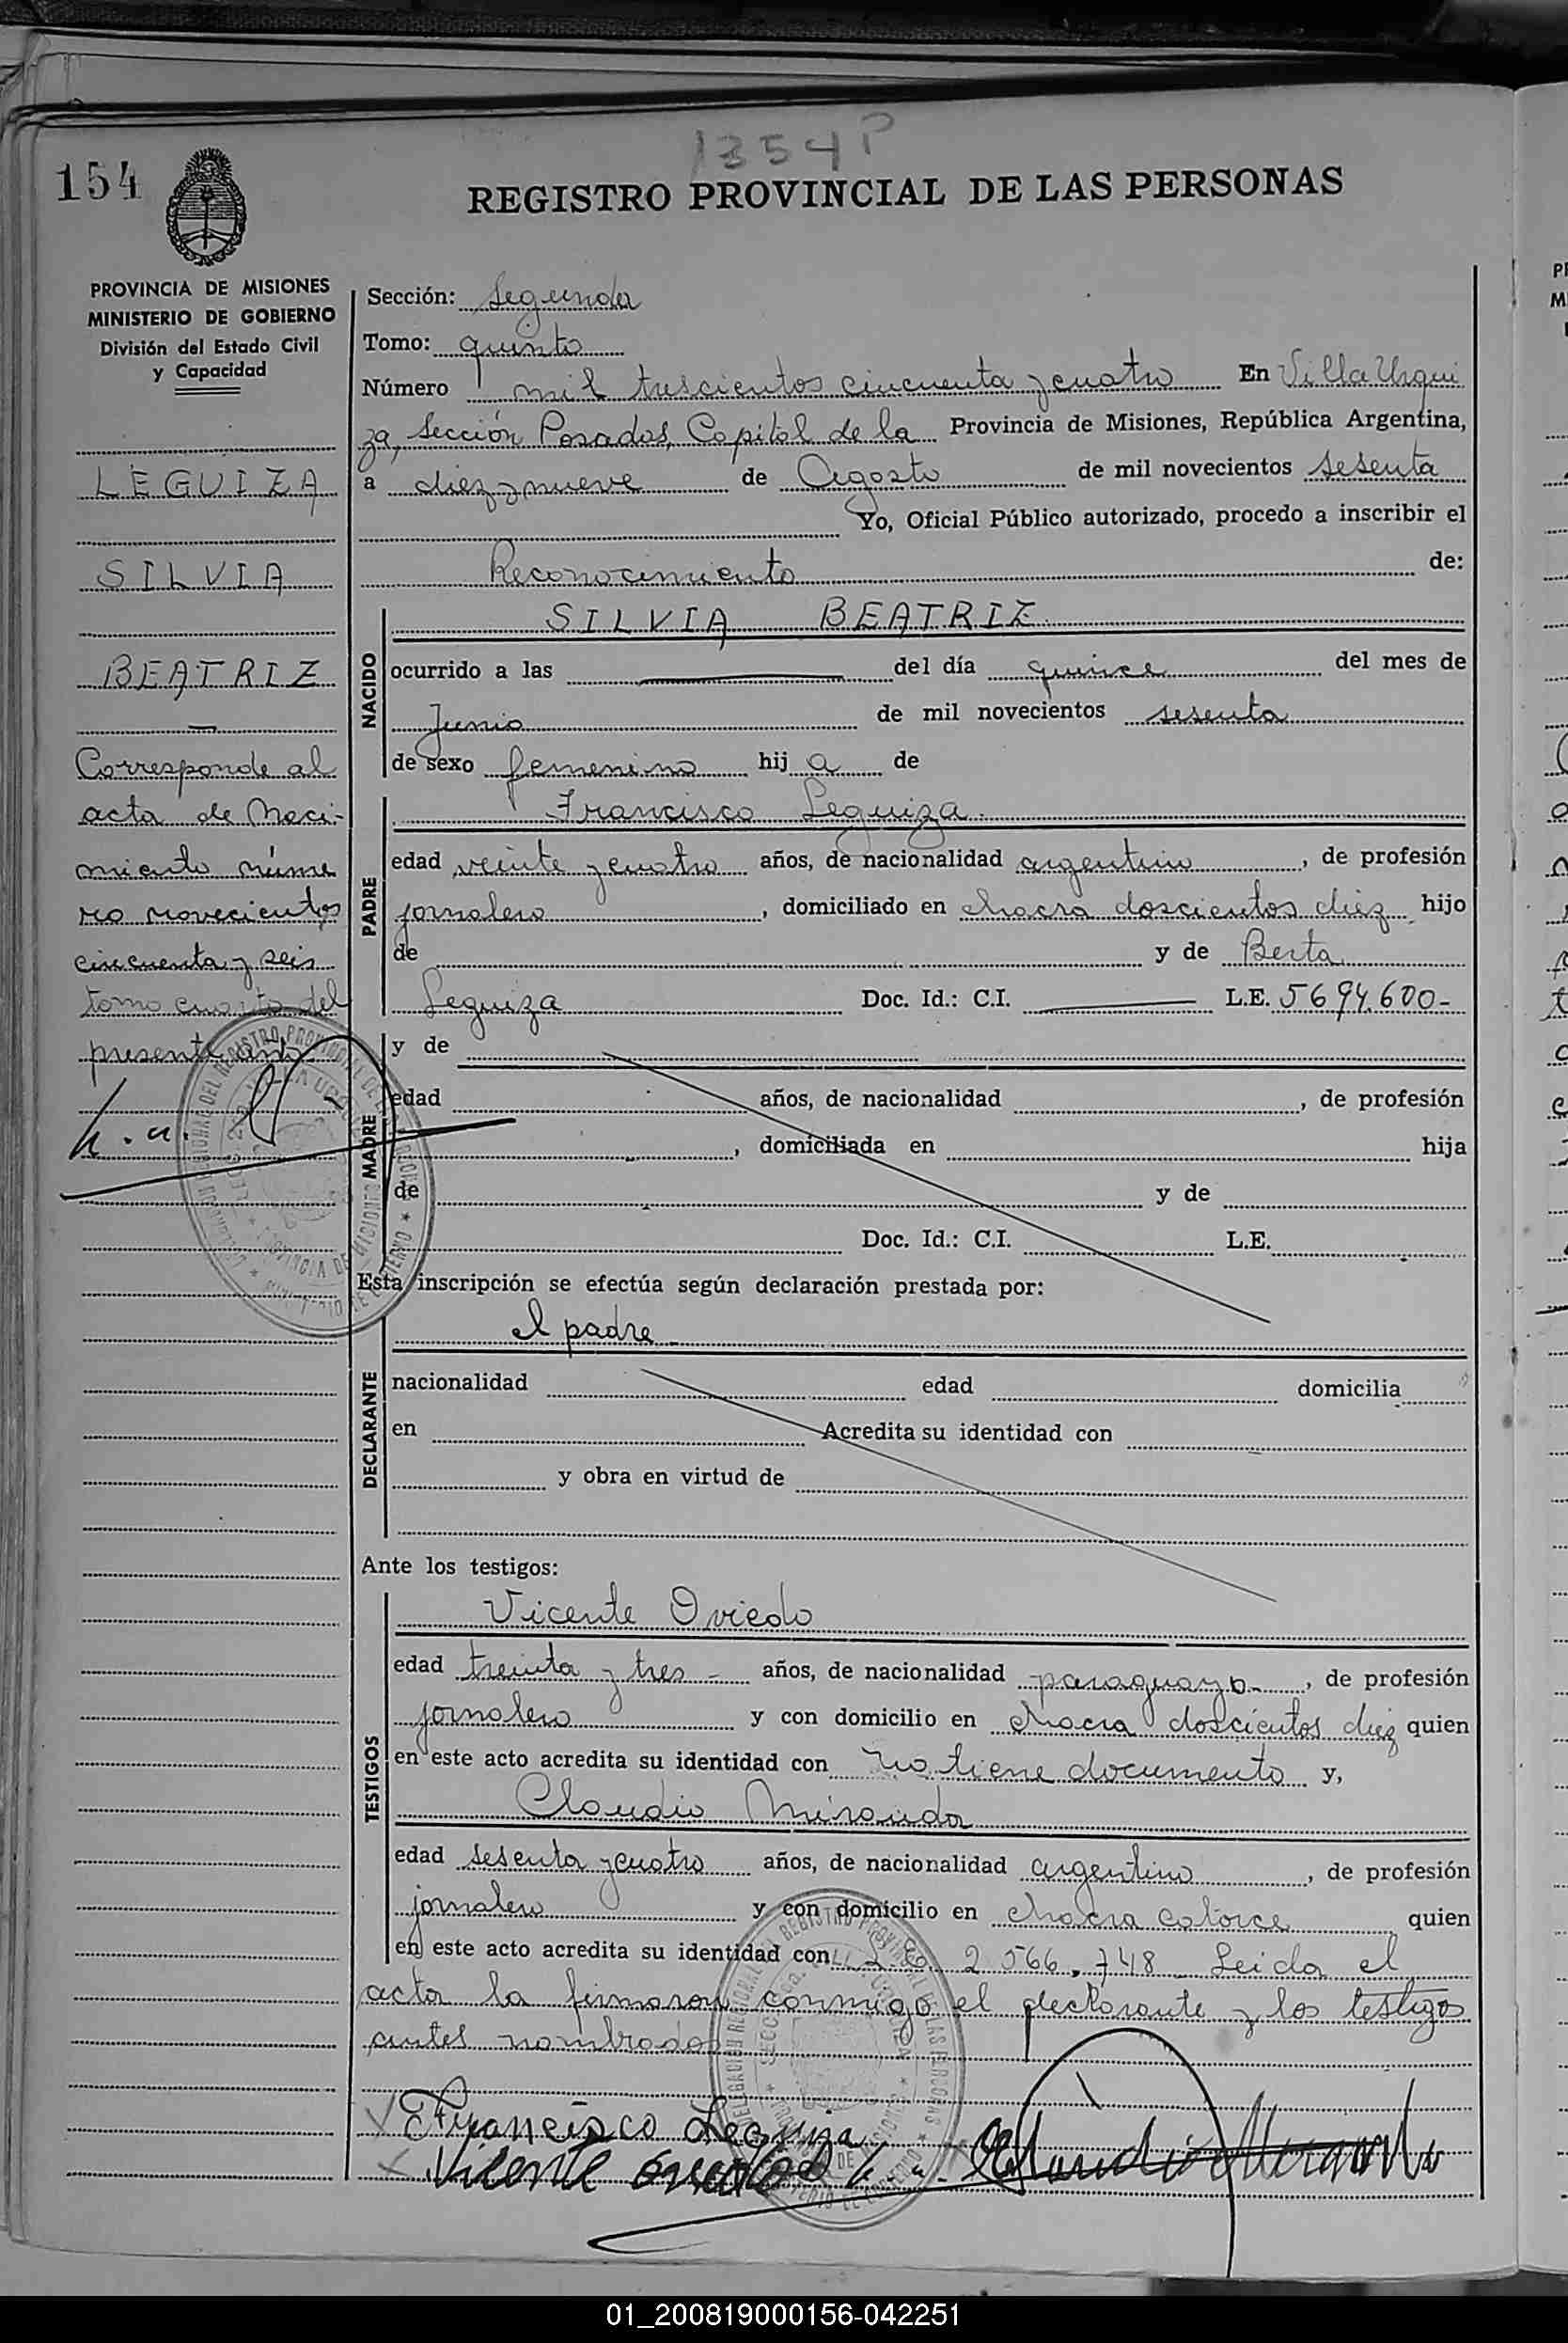 1354 P
154
REGISTRO PROVINCIAL DE LAS PERSONAS
PROVINCIA DE MISIONES
MINISTERIO DE GOBIERNO
División del Estado Civil
y Capacidad
LEGUIZA
SILVIA
BEATRIZ
Corresponde al
acta de Naci-
miento núme
ro novecientos
cincuenta y seis
tomo cuarto del
presente año
Sección: Segunda
Tomo: quinto
Número mil trescientos cincuenta y cuatro En Villa Urqui
za, Sección Posadas, Capital de la Provincia de Misiones, República Argentina,
a diez y nueve de Agosto de mil novecientos sesenta
Yo, Oficial Público autorizado, procedo a inscribir el
Reconocimiento de:
NACIDO
SILVIA BEATRIZ
ocurrido a las del día quince del mes de
Junio de mil novecientos sesenta
de sexo femenino hija de
PADRE
Francisco Leguiza
edad veinte y cuatro años, de nacionalidad argentino, de profesión
jornalero, domiciliado en chacra doscientos diez hijo
de y de Berta
Leguiza Doc. Id.: C.I. L.E. 5694.600-
MADRE
y de
edad años, de nacionalidad , de profesión
, domiciliada en hija
de y de
Doc. Id.: C.I. L.E.
Esta inscripción se efectúa según declaración prestada por:
DECLARANTE
el padre
nacionalidad edad domicilia
en Acredita su identidad con
y obra en virtud de
Ante los testigos:
TESTIGOS
Vicente Oviedo
edad treinta y tres - años, de nacionalidad paraguayo-, de profesión
jornalero y con domicilio en chacra doscientos diez quien
en este acto acredita su identidad con no tiene documento y,
Claudio Miranda
edad sesenta y cuatro años, de nacionalidad argentino, de profesión
jornalero y con domicilio en chacra catorce quien
en este acto acredita su identidad con L.E. 2.566.748 Leida el
acta la firmaron conmigo el declarante y los testigos
antes nombrados
Francisco Leguiza
Vicente Oviedo
Claudio Miranda
01_200819000156-042251